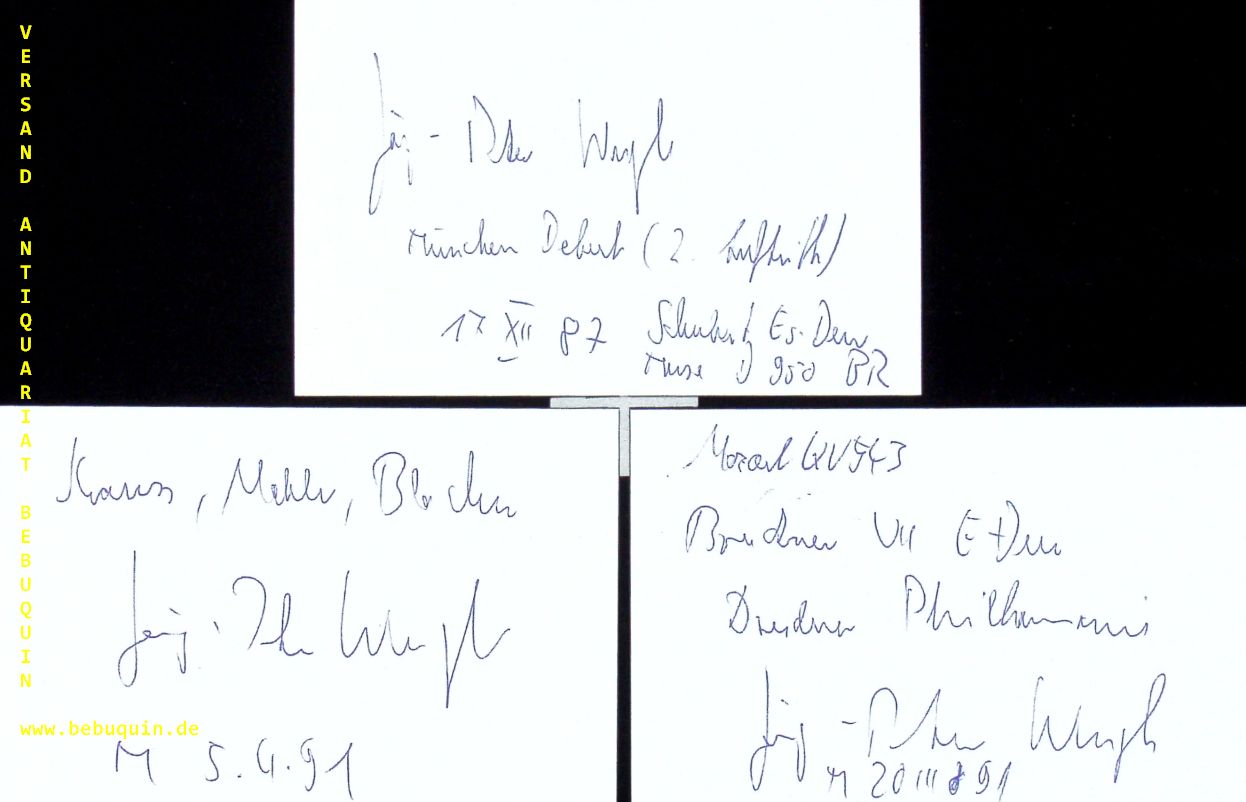 VERSAND ANTIQUARIAT BEBUQUIN
www.bebuquin.de
Jörg-Peter Weigle
München Debut (2.
17 XII 87 Schubert Es-Dur
Messe D 950 BR
Mahler, Blacher
Jörg-Peter Weigle
M 5.4.91
Mozart KV 543
Bruckner VII E-Dur
Dresdner Philharmonie
Jörg-Peter Weigle
M 20 III 91